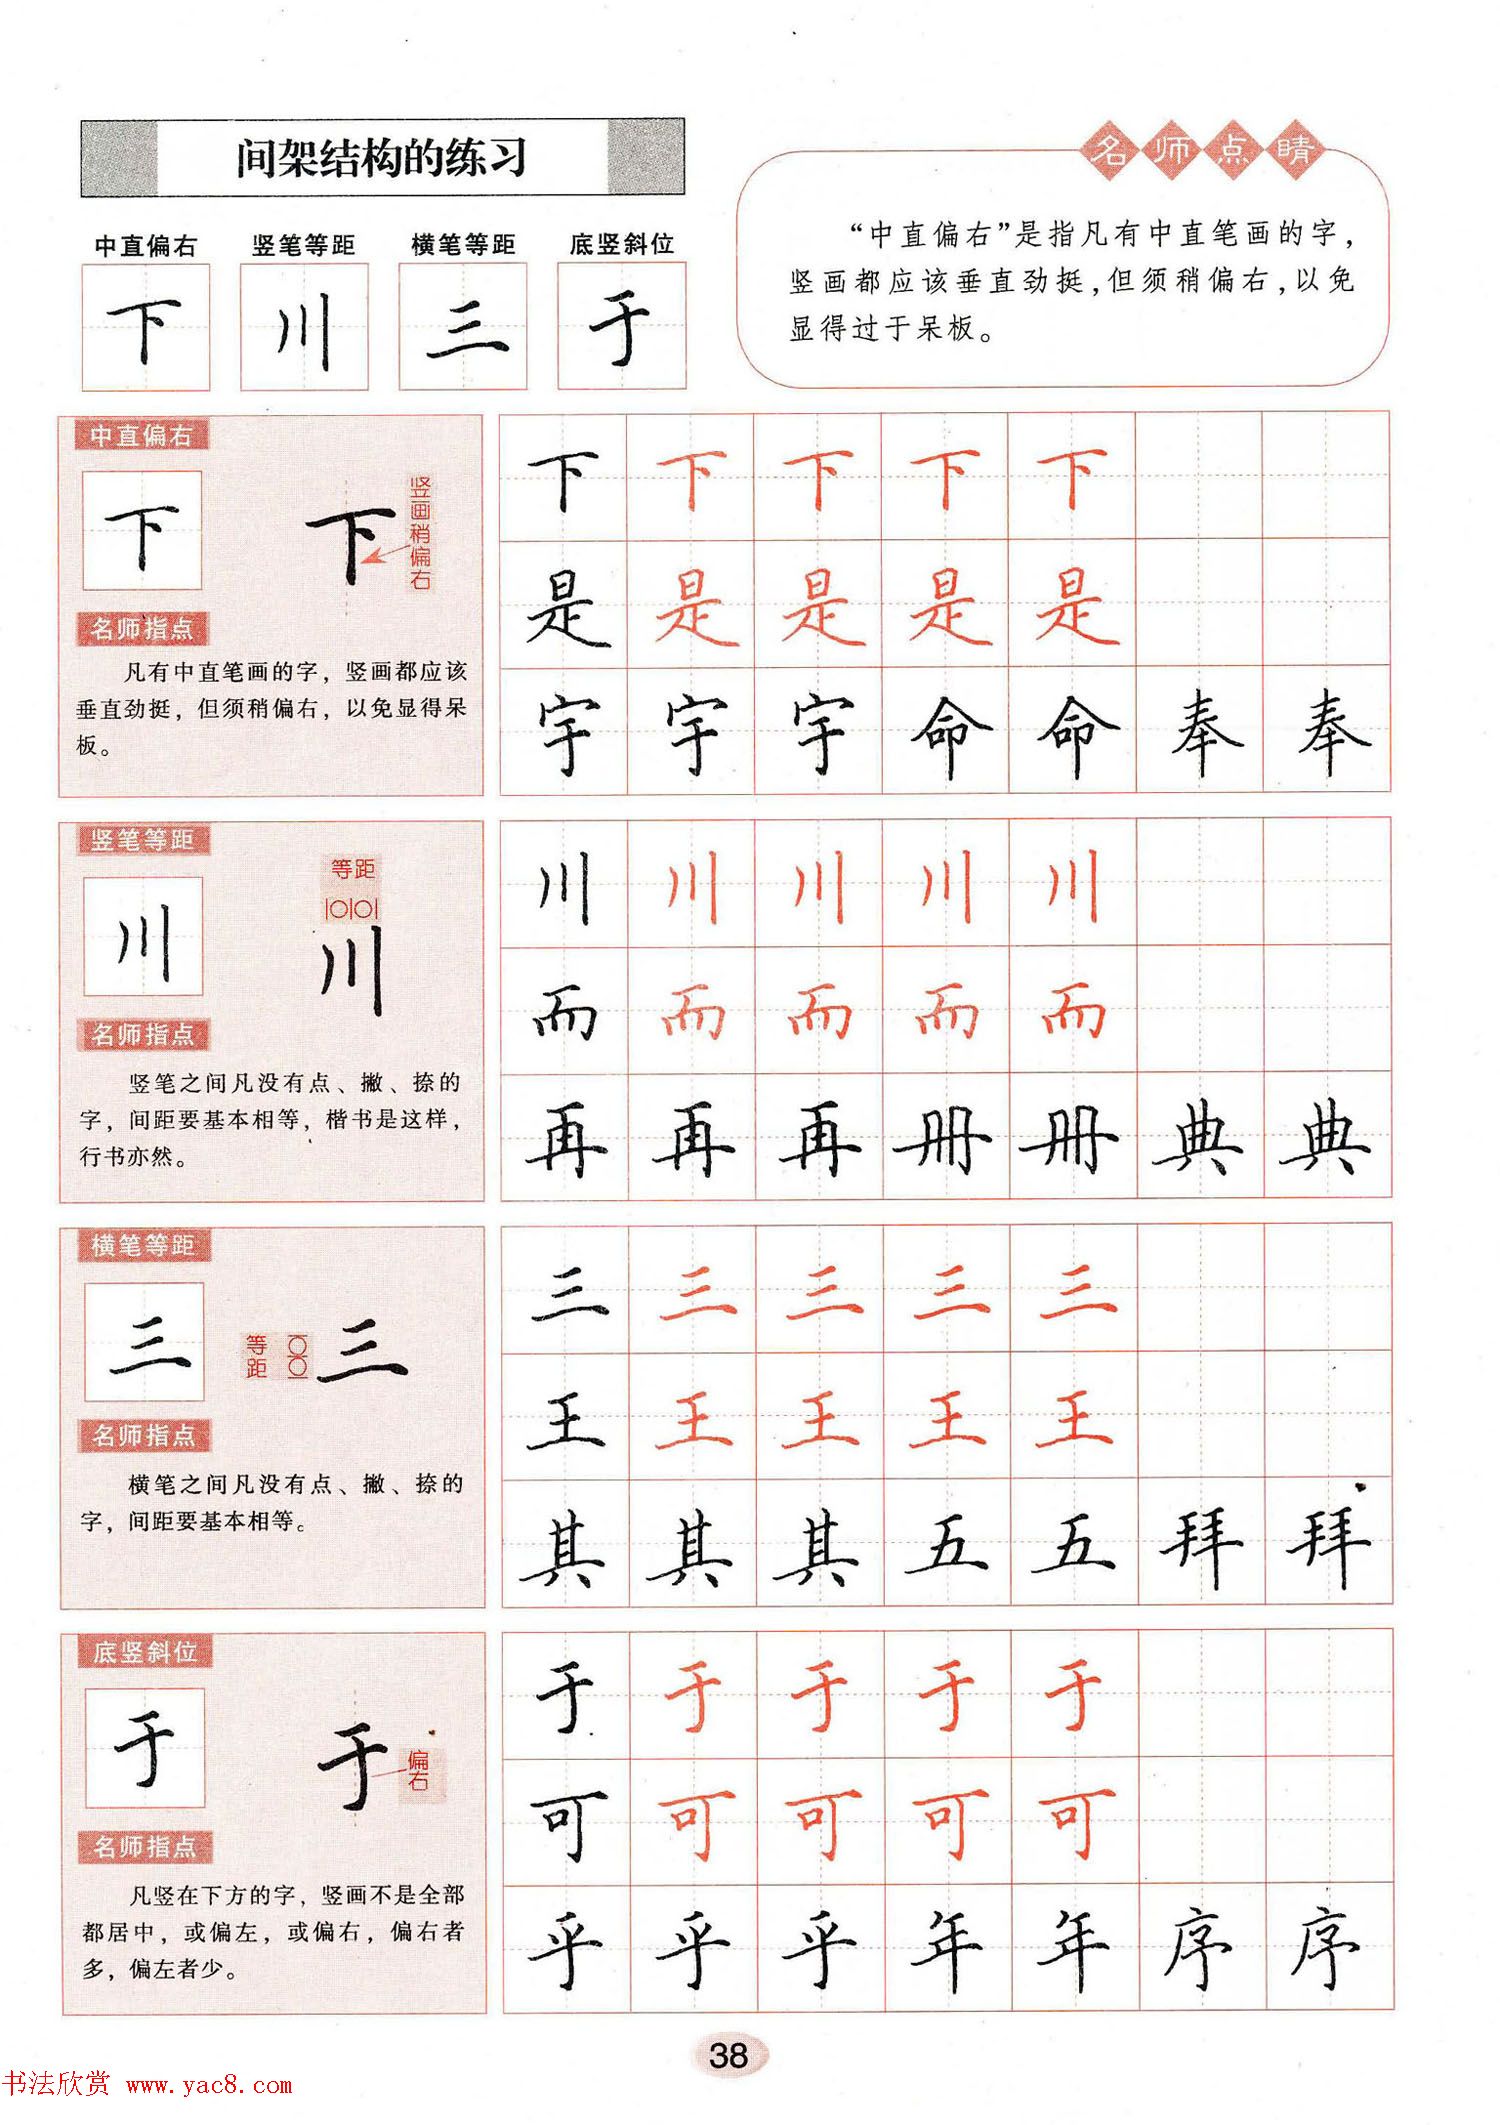 间架结构的练习
名师点睛
中直偏右 竖笔等距 横笔等距 底竖斜位
下 川 三 于
“中直偏右”是指凡有中直笔画的字，
竖画都应该垂直劲挺，但须稍偏右，以免
显得过于呆板。
中直偏右
下 下
竖画稍偏右
名师指点
凡有中直笔画的字，竖画都应该
垂直劲挺，但须稍偏右，以免显得呆
板。
下 下 下 下 下
是 是 是 是 是
宇 宇 宇 命 命 奉 奉
竖笔等距
等距
川 川
名师指点
竖笔之间凡没有点、撇、捺的
字，间距要基本相等，楷书是这样，
行书亦然。
川 川 川 川 川
而 而 而 而 而
再 再 再 册 册 典 典
横笔等距
三 等距 三
名师指点
横笔之间凡没有点、撇、捺的
字，间距要基本相等。
三 三 三 三 三
王 王 王 王 王
其 其 其 五 五 拜 拜
底竖斜位
于 于
偏右
名师指点
凡竖在下方的字，竖画不是全部
都居中，或偏左，或偏右，偏右者
多，偏左者少。
于 于 于 于 于
可 可 可 可 可
乎 乎 乎 年 年 序 序
38
书法欣赏 www.yac8.com